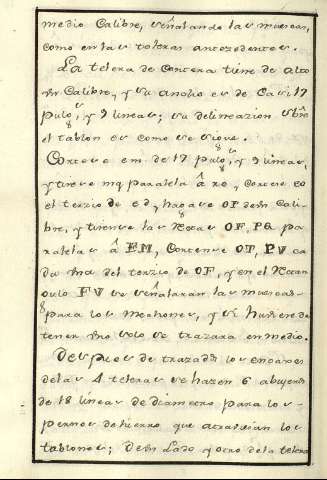 medio Calibre, señalando las muescas,
como en las toleras antecedentes.
La telera de Contera tiene de alto
un Calibre, y su ancho es de Ca.s 17
pulg.s, y 9 lineas; su delineazion sobre
el tablon es como se sigue.
Cortese em de 17 pulg.s, y 9 lineas,
y tirese mq paralela â xo, y Cortese co
el terzio de ed, y hagase OP de un Cali-
bre, y tirense las Rectas OF, PG pa-
ralelas â EM, Cortense OT, PV ca-
da una del terzio de OF, y en el Rectan-
gulo FV se señalaran las muescas
para los mechones, y si huviere de
tener uno solo se trazara en medio.
Despues de trazados los encaxes
de las 4 teleras se hazen 6 abujeros
de 18 lineas de diametro para los
pernos de hierro que atraviesan los
tablones; de un lado y otro de la telera